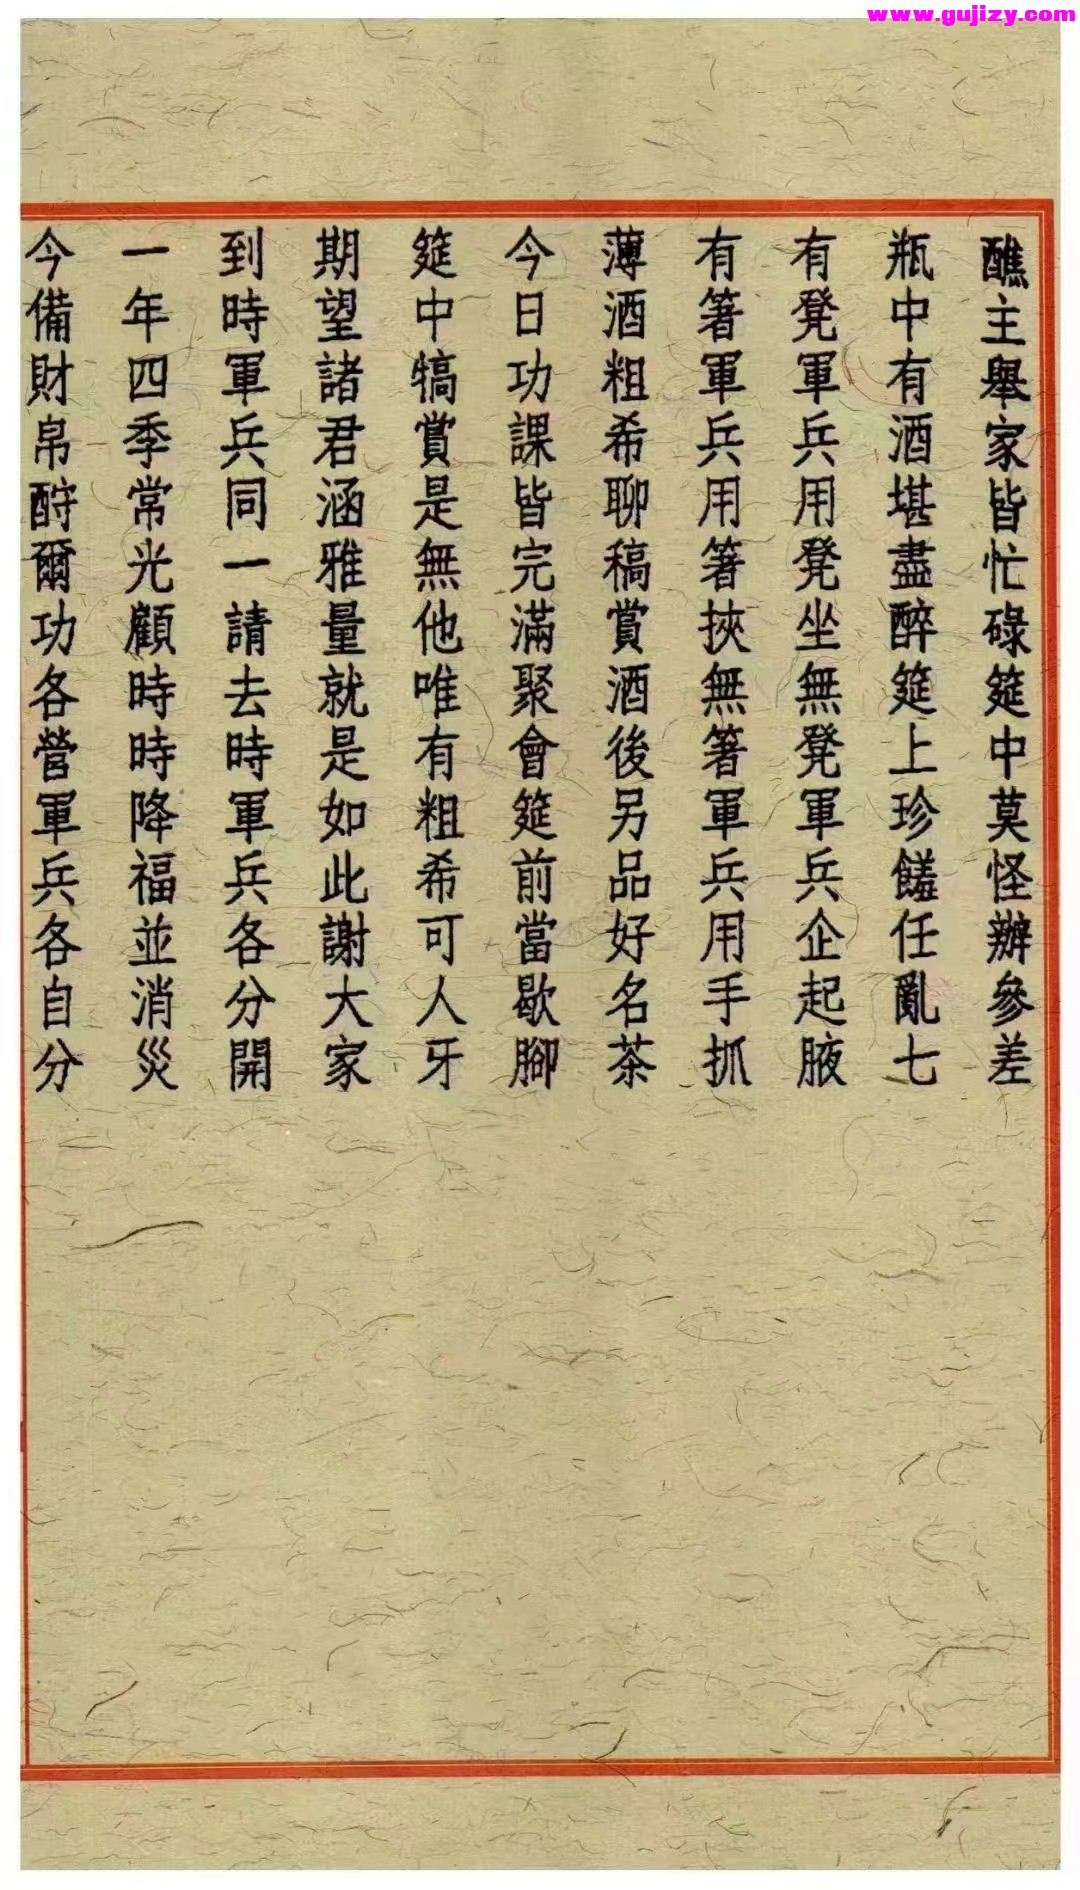 www.gujizy.com
醮主舉家皆忙碌筵中莫怪辦參差
瓶中有酒堪盡醉筵上珍饈任亂七
有凳軍兵用凳坐無凳軍兵企起腋
有箸軍兵用箸挾無箸軍兵用手抓
薄酒粗希聊稿賞酒後另品好名茶
今日功課皆完滿聚會筵前當歇腳
筵中犒賞是無他唯有粗希可人牙
期望諸君涵雅量就是如此謝大家
到時軍兵同一請去時軍兵各分開
一年四季常光顧時時降福並消災
今備財帛酧爾功各營軍兵各自分